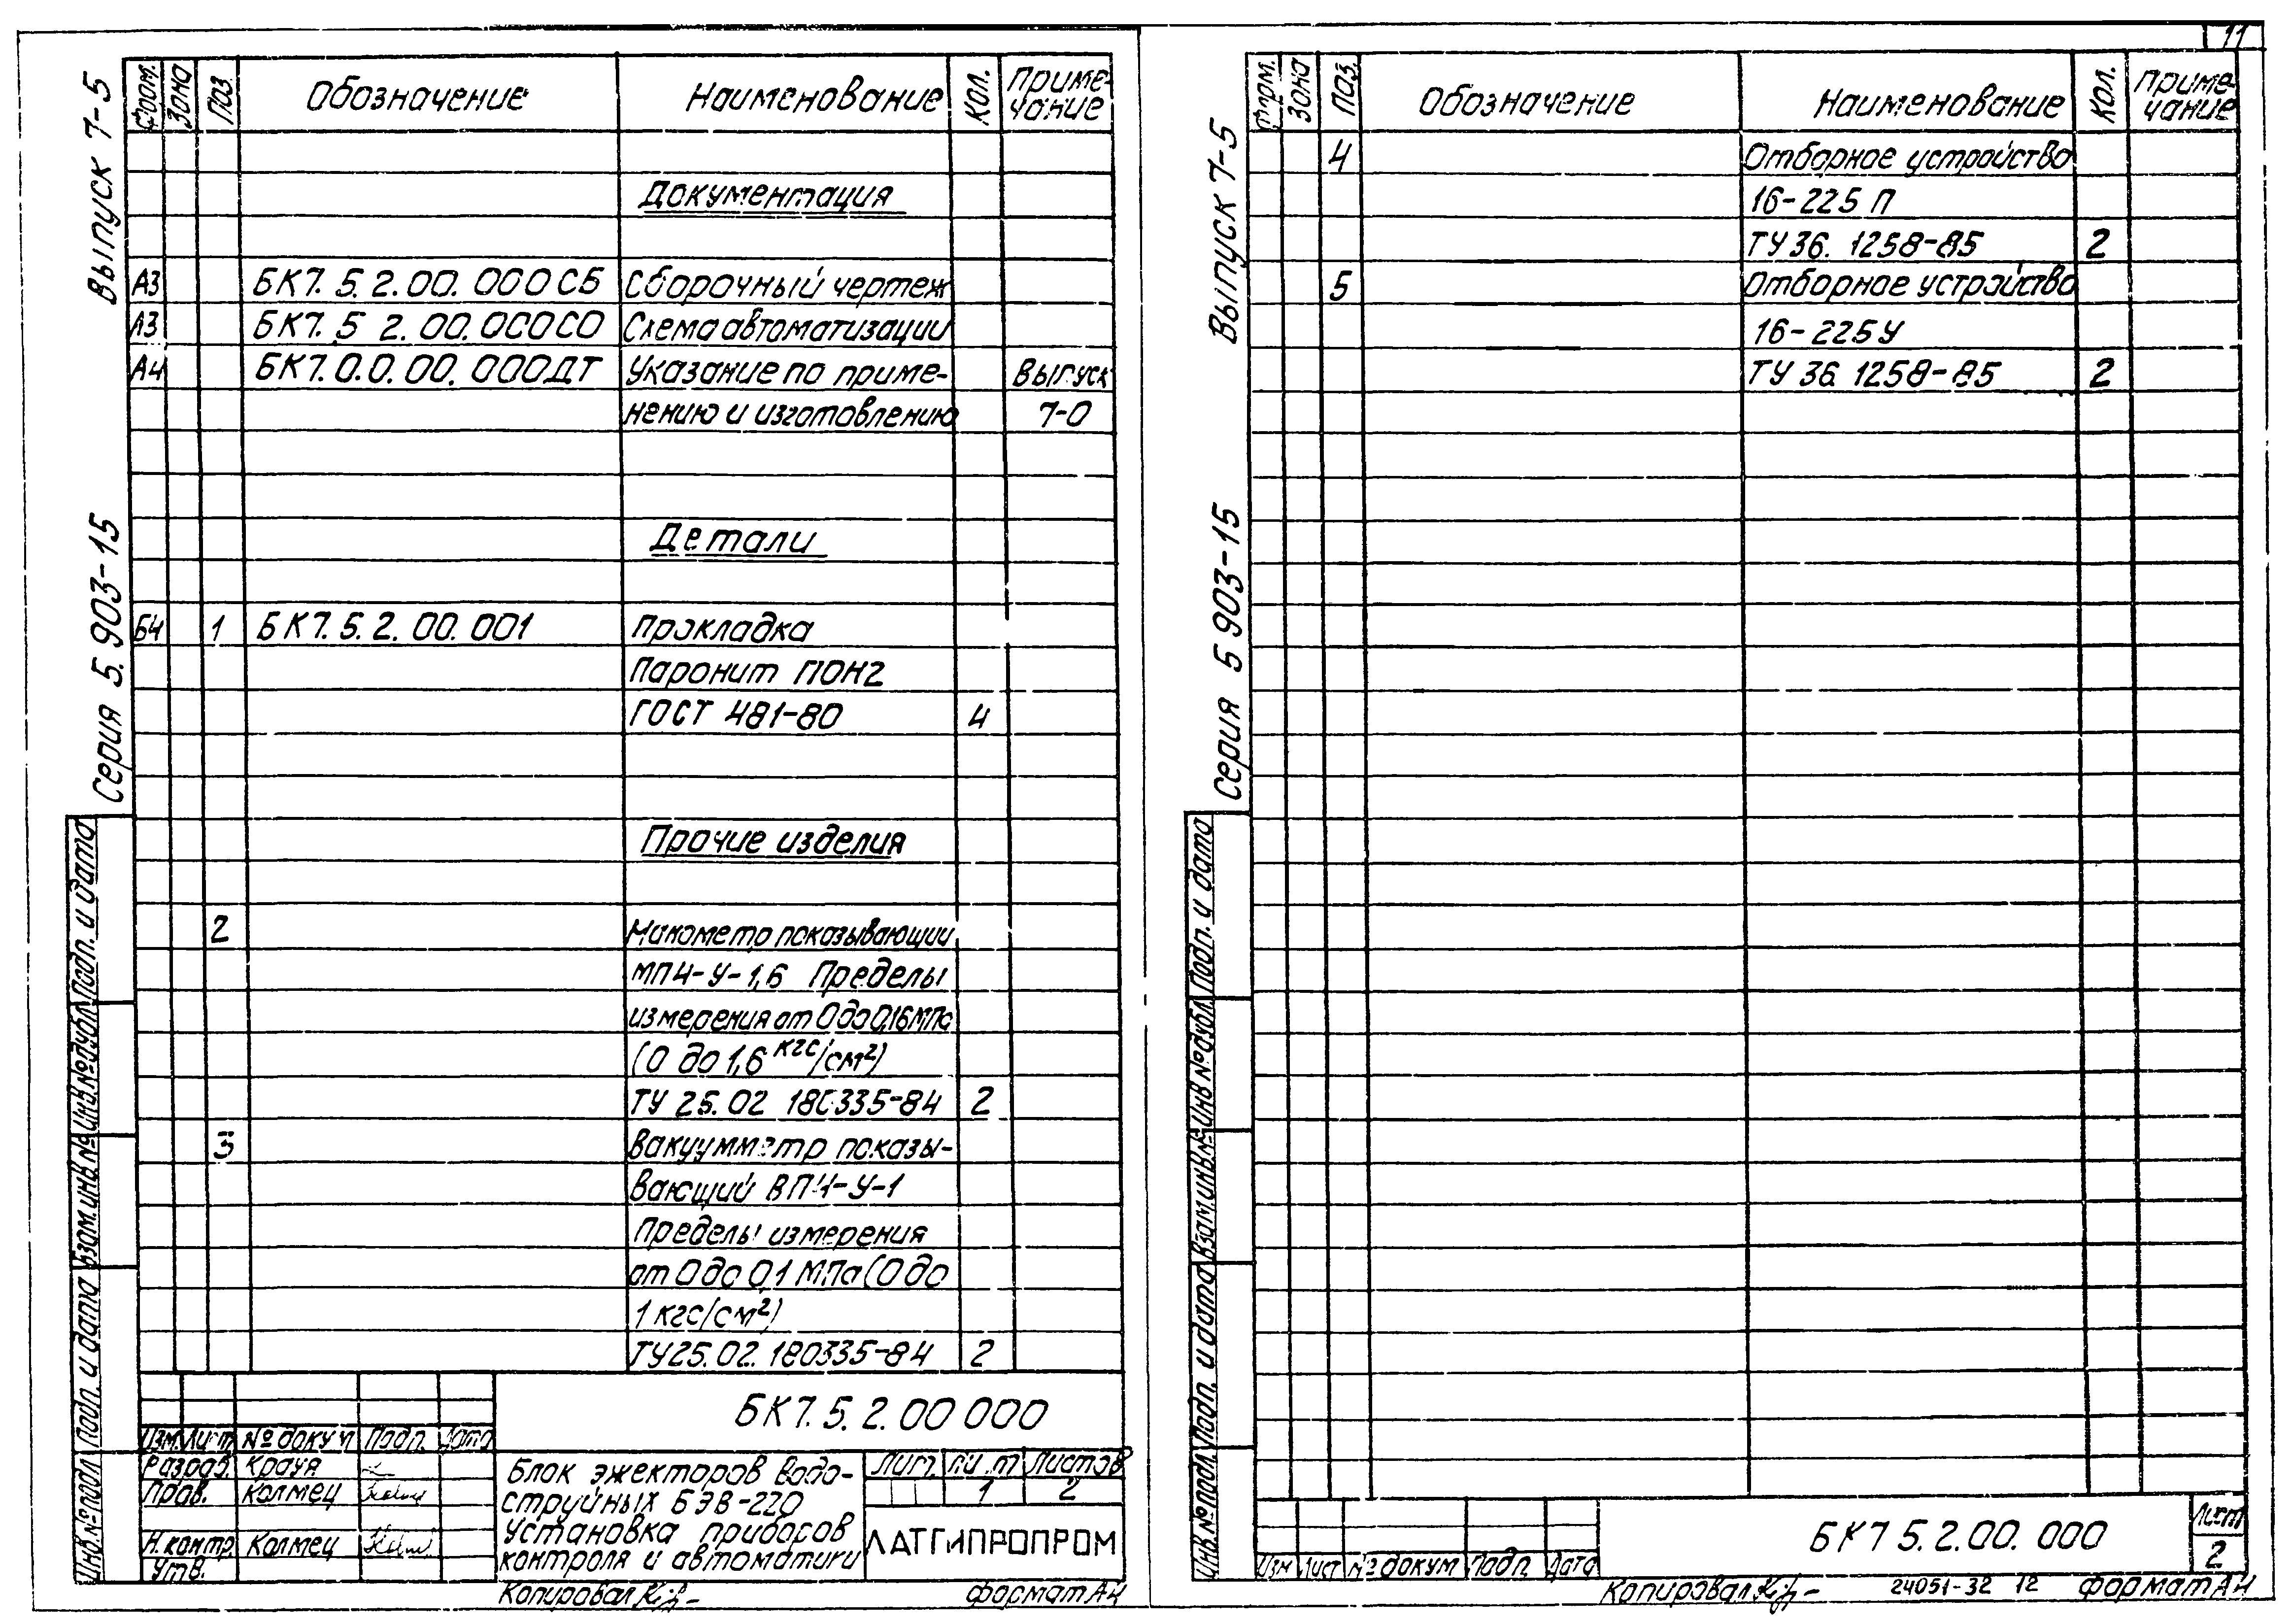 Выпуск 7-5
Серия 5.903-15
Форм. Зона Поз. Обозначение Наименование Кол. Примечание
Документация
А3 БК7.5.2.00.000СБ Сборочный чертеж
А3 БК7.5 2.00.000СО Схема автоматизации
А4 БК7.0.0.00.000ДТ Указание по приме- Выпуск
нению и изготовлению 7-0
Детали
Б4 1 БК7.5.2.00.001 Прокладка
Паронит ПОН2
ГОСТ 481-80 4
Прочие изделия
2 Манометр показывающий
МП4-У-1,6 Пределы
измерения от 0 до 0,16 МПа
(0 до 1,6 кгс/см²)
ТУ 25.02 180335-84 2
3 Вакуумметр показы-
вающий ВП4-У-1
Пределы измерения
от 0 до 0,1 МПа (0 до
1 кгс/см²)
ТУ25.02.180335-84 2
Подп. и дата
Инв.№ дубл.
Взам.инв.№
Подп. и дата
Инв.№ подл
БК7.5.2.00 000
Изм. Лист № докум Подп. Дата
Разраб. Крауя
Пров. Колмец
Н.контр. Колмец
Утв.
Блок эжекторов водо-
струйных БЭВ-220
Установка приборов
контроля и автоматики
Лит. Лист Листов
1 2
ЛАТГИПРОПРОМ
Копировал
Формат А4
11
Выпуск 7-5
Серия 5 903-15
Форм. Зона Поз. Обозначение Наименование Кол. Примечание
4 Отборное устройство
16-225 П
ТУ 36. 1258-85 2
5 Отборное устройство
16-225У
ТУ 36 1258-85 2
Подп. и дата
Инв №дубл.
Взам.инв.№
Подп. и дата
Инв.№ подл
БК7 5.2.00. 000
Лист
2
Изм Лист № докум Подп. Дата
Копировал
24051-32 12
Формат А4